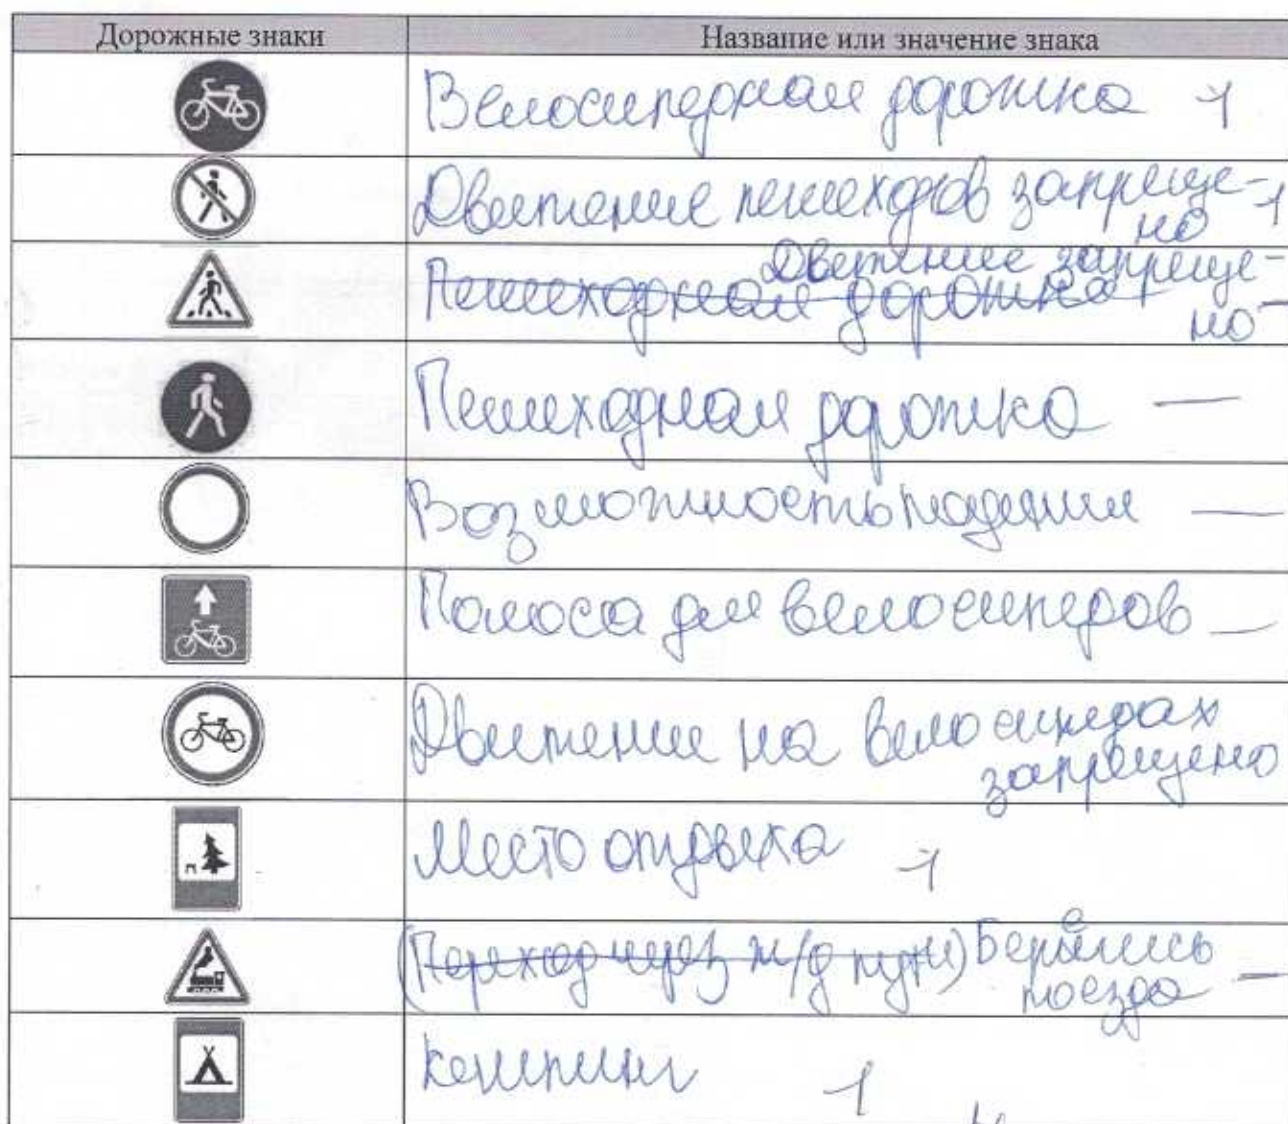 Дорожные знаки Название или значение знака
Велосипедная дорожка 1
Движение пешеходов запреще- 1
но
Движение запреще-
Пешеходная дорожка
но —
Пешеходная дорожка —
Возможность падения —
Полоса для велосипедов —
Движение на велосипедах
запрещено
Место отдыха 1
(Переход через ж/д пути) Берегись
поезда —
Кемпинг 1